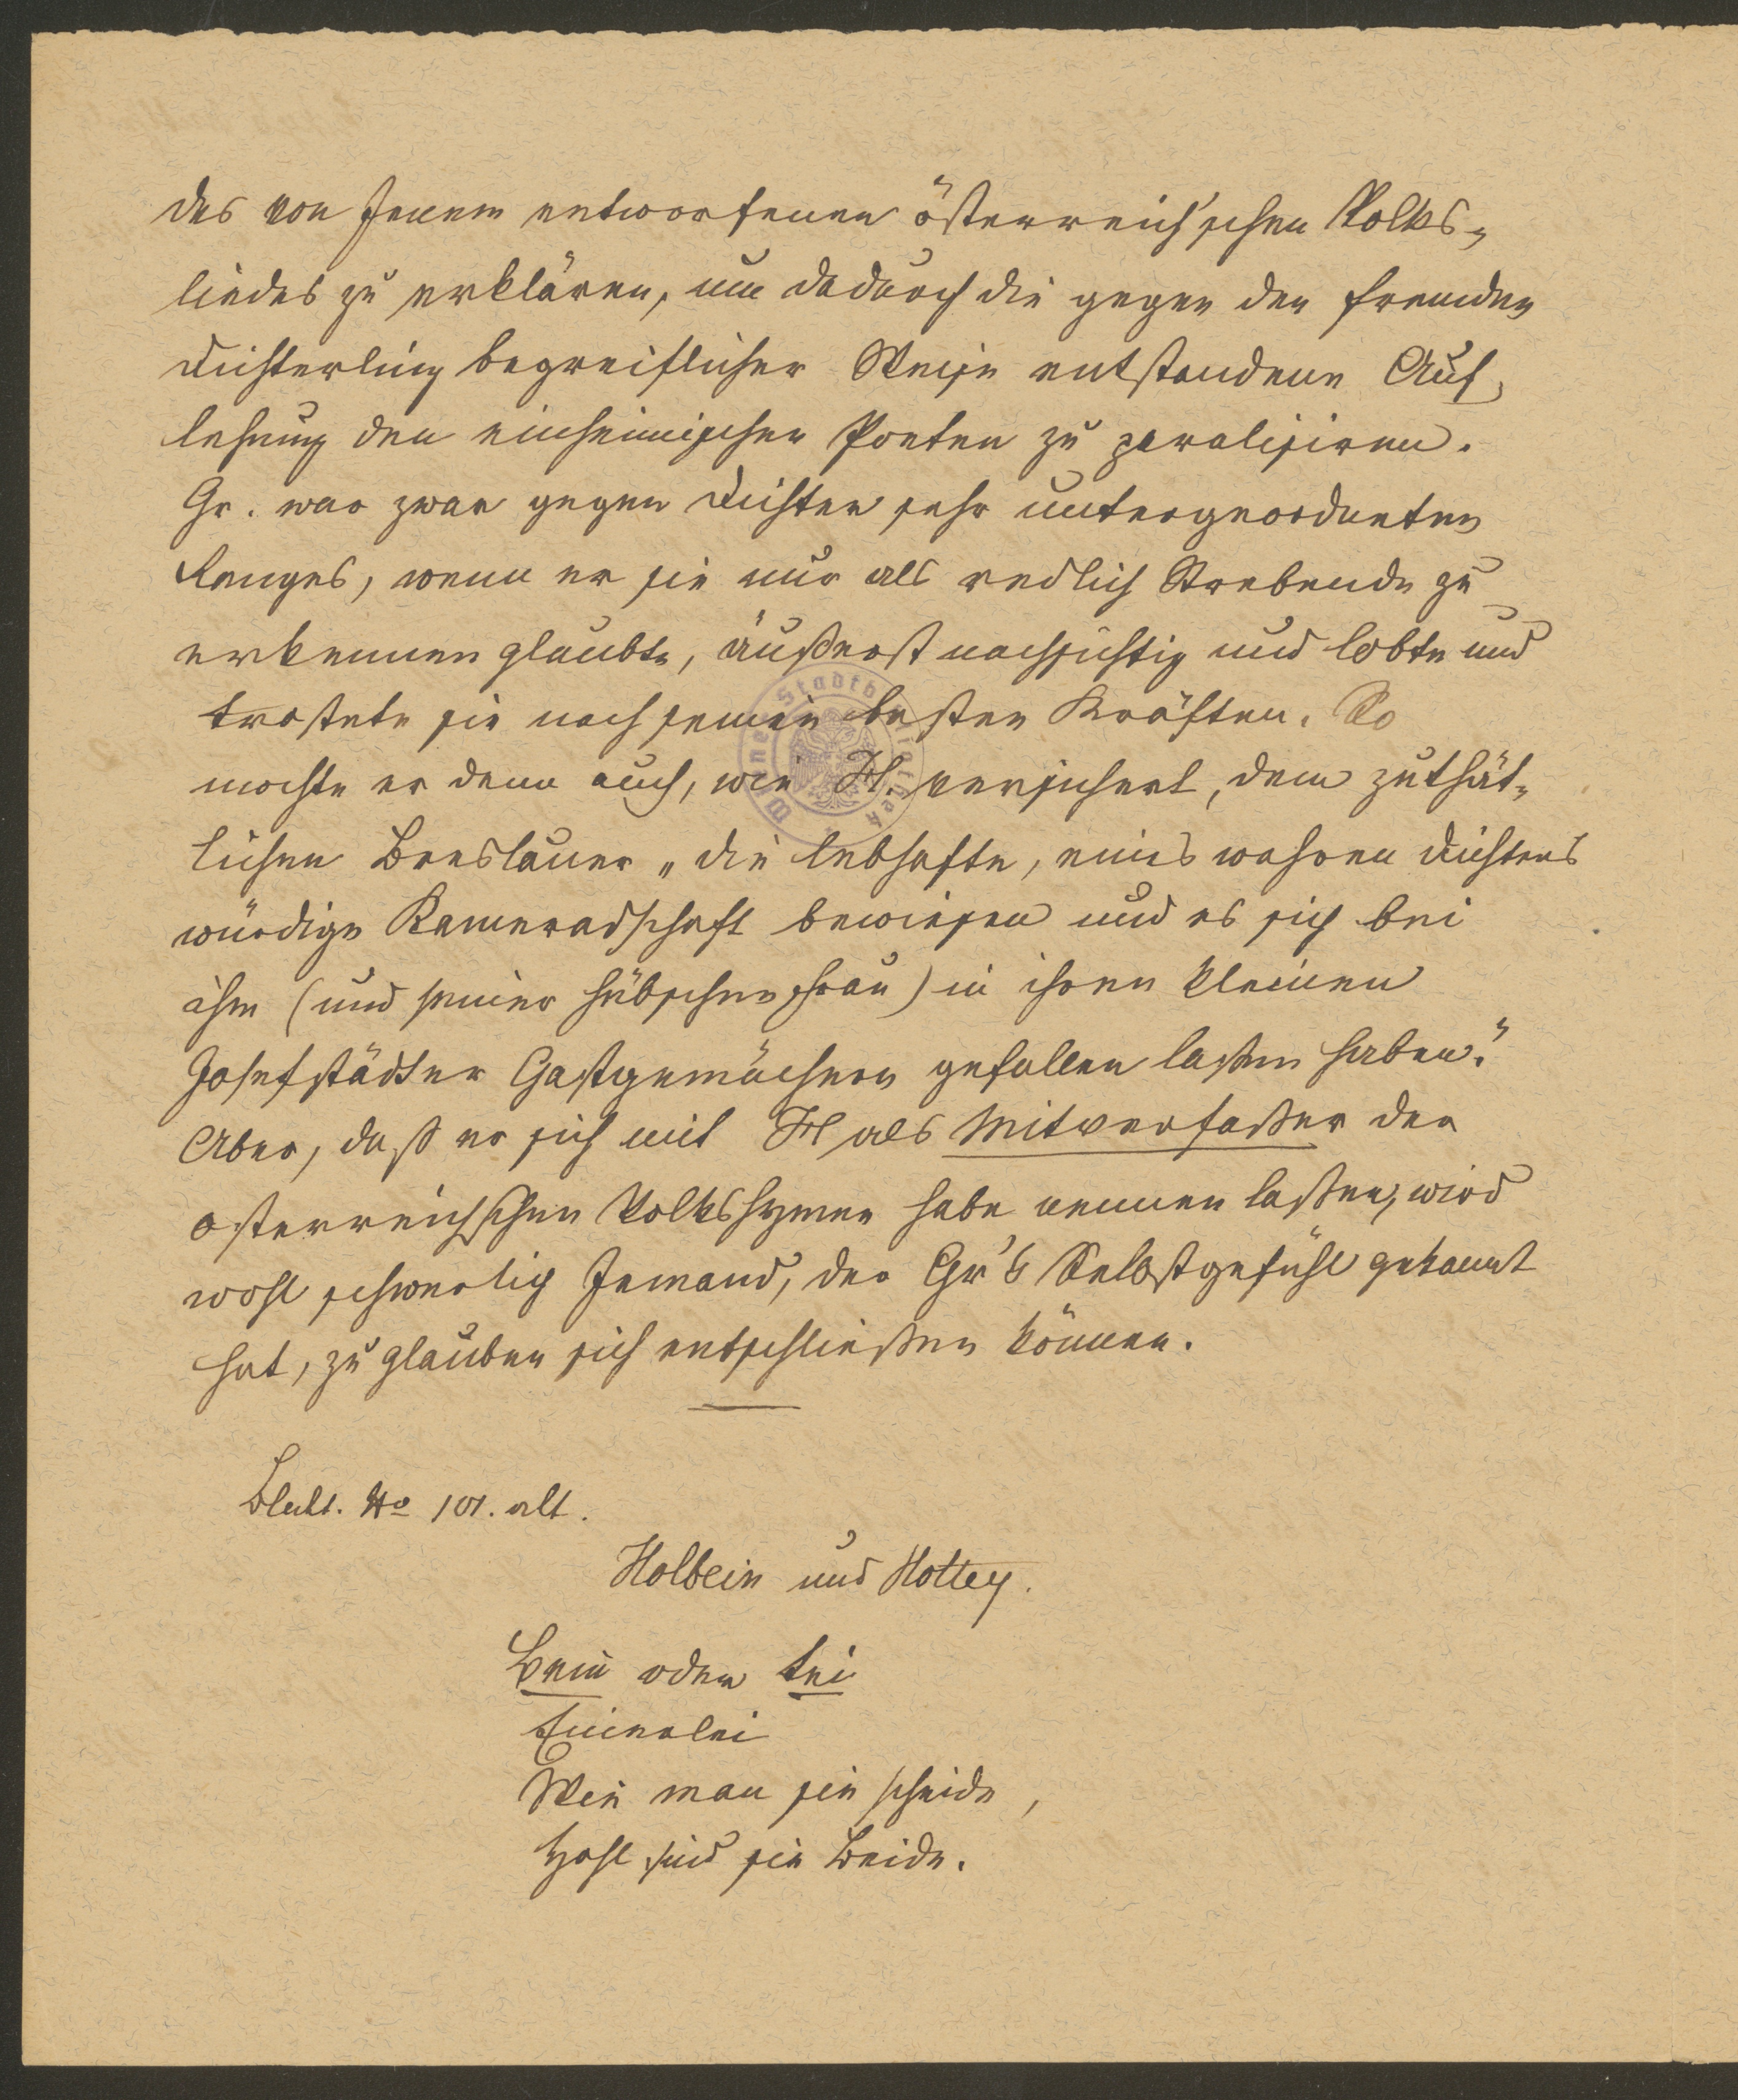 des von Jenem entworfenen österreich'schen Volks-
liedes zu erklären, um dadurch die gegen den fremden
Dichterling begreiflicher Weise entstandene Auf-
lehnung der einheimischen Poeten zu paralisiren.
Gr. war zwar gegen Dichter sehr untergeordneten
Ranges, wenn er sie nur als redlich Strebende zu
erkennen glaubte, äußerst nachsichtig und lobte und
trostete sie nach seinen besten Kräften. So
mochte er denn auch, wie H. versichert, dem zuthät-
lichen Breslauer „die lebhafte, eines wahren Dichters
würdige Kameradschaft bewiesen und es sich bei
ihm (und seiner hübschen Frau) in ihren kleinen
Josefstädter Gastgemächern gefallen laßen haben."
Aber, daß er sich mit H als Mitverfaßer der
osterreichschen Volkshymne habe nennen laßen, wird
wohl schwerlich Jemand, der Gr's Selbstgefühl gekannt
hat, zu glauben sich entschließen können.
Blatt. No 101. alt.
Holbein und Holtey.
Bein oder tei
Einerlei
Wie man sie scheide,
Hohl sind sie Beide.
Wiener Stadtbibliothek